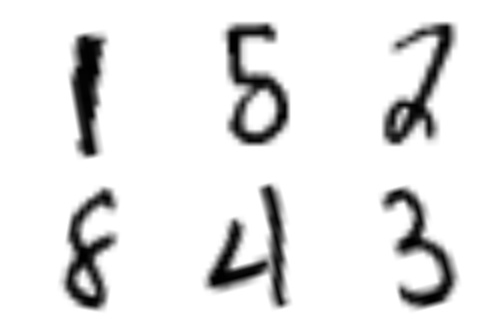 1 5 2
8 4 3